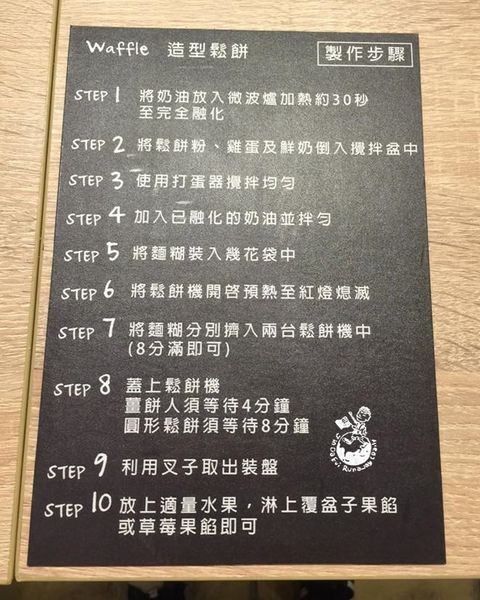 Waffle 造型鬆餅 製作步驟
STEP 1 將奶油放入微波爐加熱約30秒
至完全融化
STEP 2 將鬆餅粉、雞蛋及鮮奶倒入攪拌盆中
STEP 3 使用打蛋器攪拌均勻
STEP 4 加入已融化的奶油並拌勻
STEP 5 將麵糊裝入幾花袋中
STEP 6 將鬆餅機開啓預熱至紅燈熄滅
STEP 7 將麵糊分別擠入兩台鬆餅機中
(8分滿即可)
STEP 8 蓋上鬆餅機
薑餅人須等待4分鐘
圓形鬆餅須等待8分鐘
STEP 9 利用叉子取出裝盤
STEP 10 放上適量水果，淋上覆盆子果餡
或草莓果餡即可